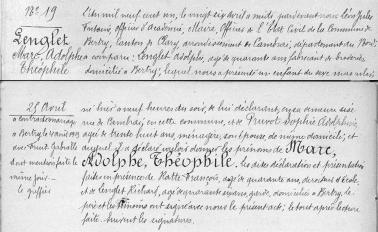 N° 19
Lenglet
Marc, Adolphe
Théophile
L'an mil neuf cent un, le vingt six avril à midi, pardevant nous Léon Jules
officier d'académie, Maire, Officier de l'Etat Civil de la Commune de
Bertry, canton de Clary, arrondissement de Cambrai, département du Nord
a comparu: Lenglet Adolphe, âgé de quarante ans, fabricant de broderies
domicilié à Bertry; lequel nous a présenté un enfant du sexe masculin,
25 Avril
a contracté mariage
à Bertry le
avec
dont mention faite le
même jour
le greffier
né hier à neuf heures du soir, de lui déclarant, en sa demeure sise
rue de Cambrai, en cette commune, et de Pruvot Sophie Adolphine,
âgée de trente huit ans, ménagère, son épouse de même domicile; et
auquel il a déclaré vouloir donner les prénoms de Marc,
Adolphe, Théophile. Les dites déclaration et présentation
faites en présence de Hatte François, âgé de quarante ans, directeur d'école,
et de Lenglet Richard, âgé de quarante ans, domiciliés à Bertry, le
père et les témoins ont signé avec nous le présent acte; le tout après lecture
faite. Suivent les signatures.